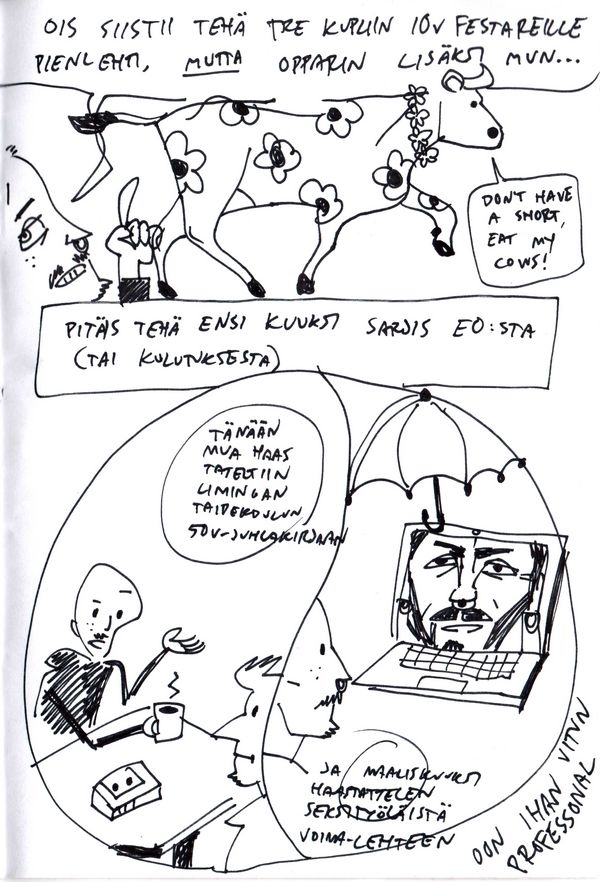 OIS SIISTII TEHÄ TRE KUPLIIN 10V FESTAREILLE
PIENLEHTI, MUTTA OPPARIN LISÄKSI MUN...
DON'T HAVE
A SHORT,
EAT MY
COWS!
PITÄIS TEHÄ ENSI KUUKSI SARJIS EO:STA
(TAI KULUTUKSESTA)
TÄNÄÄN
MUA HAAS
TATELTIIN
LIMINGAN
TAIDEKOULUN
50V-JUHLAKIRJAAN
JA MAALISKUUKSI
HAASTATTELEN
SEKSITYÖLÄISTÄ
VOIMA-LEHTEEN
OON IHAN VITUN
PROFESSONAL